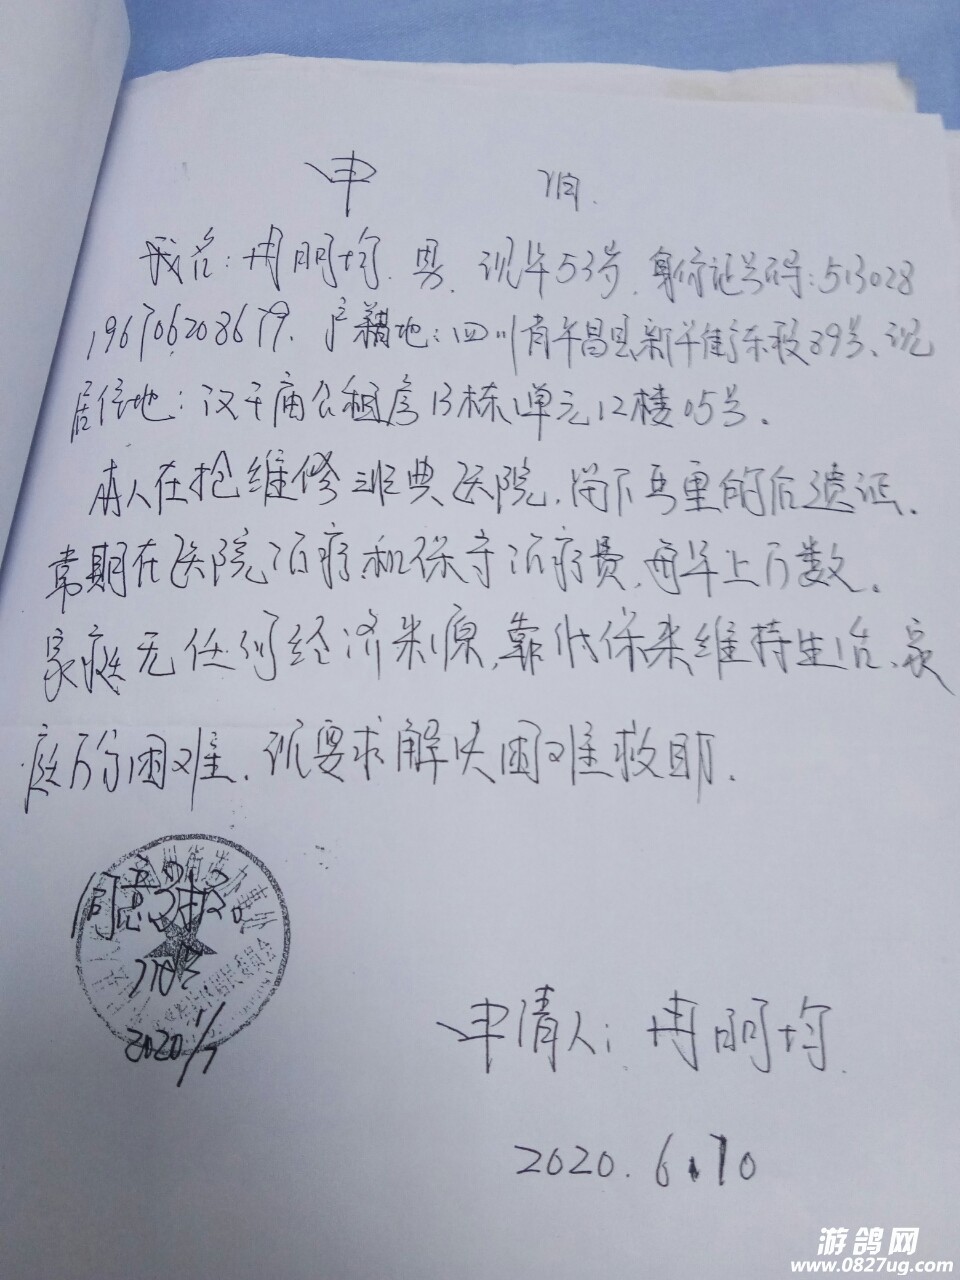 申 请.
我名:冉丽均.男.现年53岁.身份证号码:513028
196706208679.户籍地:四川省平昌县新平街东段89号、现
居住地:汉王庙公租房13栋1单元12楼05号.
本人在抢维修 班典医院.留下严重的后遗证.
常期在医院治疗和保守治疗费,每年上万数.
家庭无任何经济来源,靠低保来维持生活、家
庭万分困难.现要求解决困难救助.
同意上报。
2020 1/7
申请人:冉丽均.
2020.6.10
游鸽网
www.0827ug.com